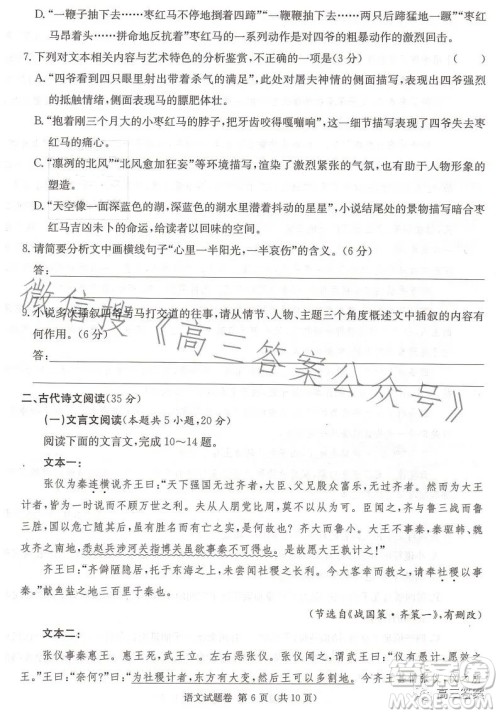 D. “一鞭子抽下去……枣红马不停地捯着四蹄……一鞭鞭抽下去……两只后蹄猛地一蹬……枣红
马昂着头……拼命地反抗着……”枣红马的一系列动作是对四爷的粗暴动作的激烈回击。
7. 下列对文本相关内容与艺术特色的分析鉴赏，不正确的一项是(3 分)（ ）
A. “四爷虽然还活着，但和死人没啥区别了”是对屠夫神情的侧面描写，写出四爷的
“气”。
B. “抱着刚三个月大的小枣红马的脖子，把他拉得嘎嘎响”的细节描写写出了四爷失去枣
红马的痛心。
C. “凛冽的北风”“北风愈加狂妄”等环境描写，渲染了激烈紧张的气氛，也有助于人物形象
的塑造。
D. “天空像一面深蓝色的湖，深蓝色的湖水里潜着抖动的星星”，小说结尾处的景物描写
枣红马吉凶未卜的命运，给读者以回味的空间。
8. 请简要分析文中画横线句子“心里一半阳光，一半哀伤”的含义。(6 分)
答：
9. 小说多次插叙四爷与马打交道的往事，请从情节、人物、主题三个角度概述文中插叙的内容有
何作用。(6 分)
答：
二、古代诗文阅读(35 分)
(一)文言文阅读(本题共 5 小题，20 分)
阅读下面的文言文，完成 10～14 题。
文本一：
张仪为秦连横说齐王曰：“天下强国无过齐者，大臣、父兄殷众富乐，无过齐者。然而为大王计
者，皆为一时说而不顾万世之利。夫从人朋党比周，莫不以从为可。臣闻之，齐与鲁三战而鲁
三胜，国以危，亡随其后，虽有胜名而有亡之实，是何故也？齐大而鲁小。大王不事秦，秦驱韩、魏
攻齐之南地，悉赵兵涉河关指博关虽欲事秦不可得也。是故愿大王熟计之！”
齐王曰：“齐僻陋隐居，托于东海之上，未尝闻社稷之长利。今大客幸而教之，请奉社稷以事
秦。”献鱼盐之地三百里于秦也。
(节选自《战国策·齐策一》，有删改)
文本二：
张仪事秦惠王。惠王死，武王立。左右恶张仪，曰：“仪事先王不忠。”言未已，齐让又至。张仪
曰：“奈何？”曰：“为社稷计者，东方有大变，然后王可以多割地。
语文试题卷 第 6 页（共 10 页）
微信搜《高三答案公众号》
高三答案